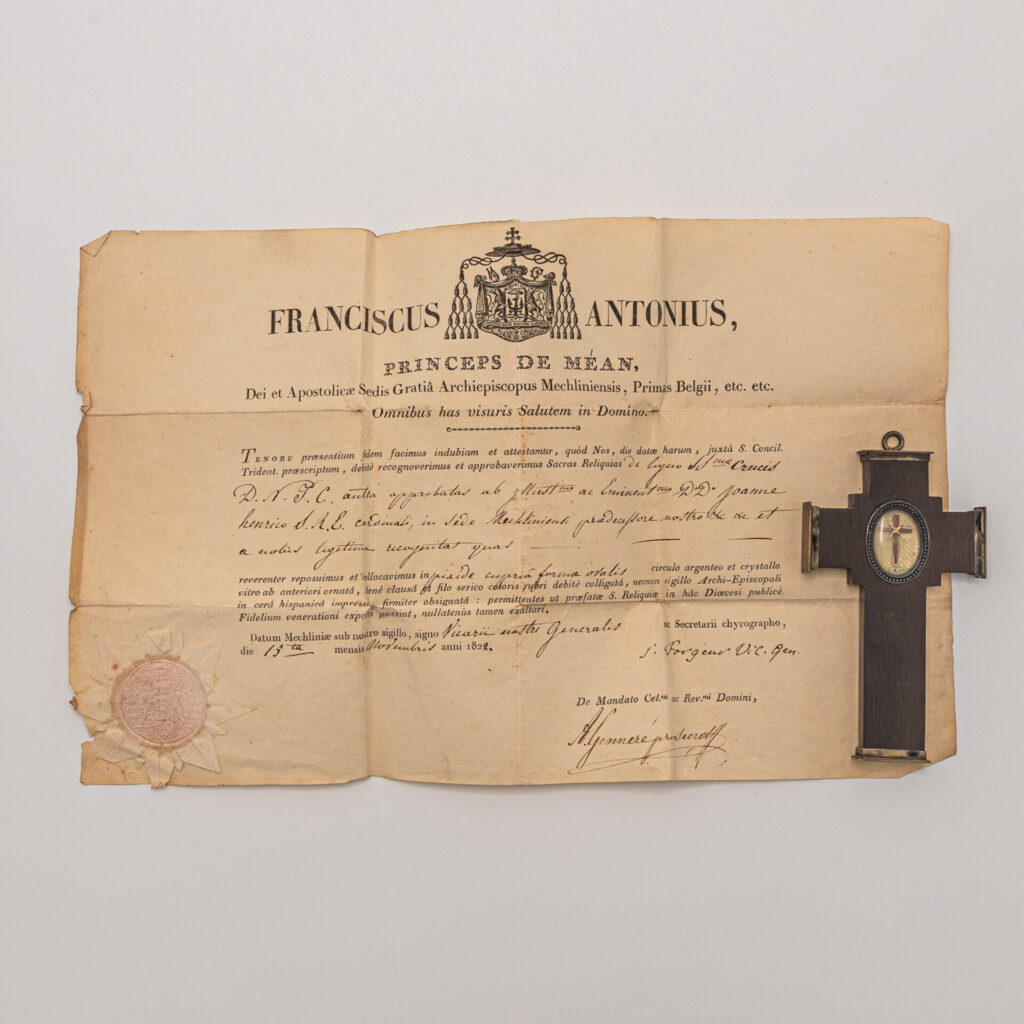 FRANCISCUS ANTONIUS,
PRINCEPS DE MÉAN,
Dei et Apostolicæ Sedis Gratiâ Archiepiscopus Mechliniensis, Primas Belgii, etc. etc.
Omnibus has visuris Salutem in Domino.
TENORE præsentium fidem facimus indubiam et attestamur, quòd Nos, die datæ harum, juxtà S. Concil.
Trident. præscriptum, debitè recognoverimus et approbaverimus Sacras Reliquias de ligno S.smæ Crucis
D. N. J. C. approbatas ab ac Eminentmo D.D. Joanne
henrico S. R. E. cardinali, in sede Mechliniensi prædecessore nostro &c &c et
a nobis legitime recognitas quas
reverenter reposuimus et collocavimus in pixide cuprea formæ ovalis circulo argenteo et crystallo
vitro ab anteriori ornatâ, benè clausâ et filo serico coloris rubri debitè colligatâ, necnon sigillo Archi-Episcopali
in cerâ hispanicâ impresso firmiter obsignatâ : permittentes ut præfatæ S. Reliquiæ in hâc Diœcesi publicè
Fidelium venerationi exponi possint, nullatenùs tamen exaltari.
Datum Mechliniæ sub nostro sigillo, signo Vicarii nostri Generalis ac Secretarii chyrographo,
die 15ta mensis Novembris anni 1822. J. Forgeur Vic. Gen.
De Mandato Cel.mi ac Rev.mi Domini,
A. Genneré prosecret